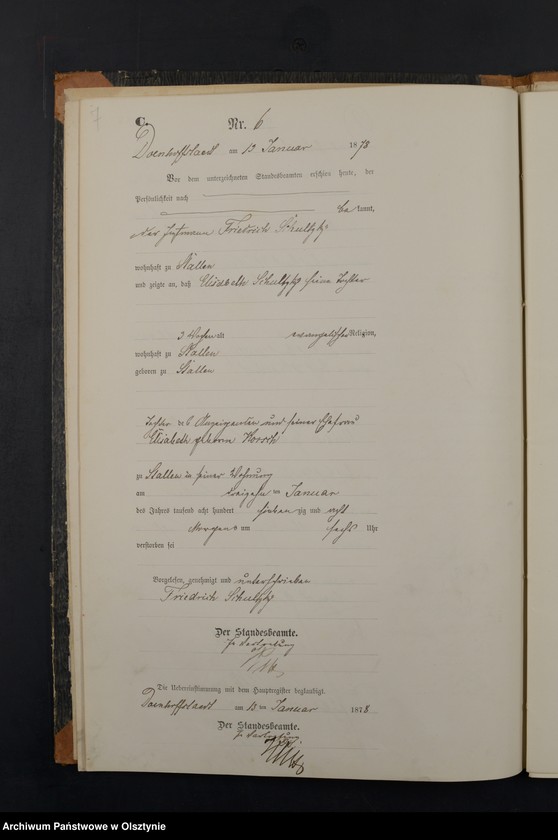 7
C.
Nr. 6
Doenhoffstaedt am 13 Januar 1878
Vor dem unterzeichneten Standesbeamten erschien heute, der
Persönlichkeit nach
be kannt,
der Instmann Friedrich Schultz
wohnhaft zu Stallen
und zeigte an, daß Elisabeth Schultz seine Tochter
3 Wochen alt evangelischer Religion,
wohnhaft zu Stallen
geboren zu Stallen
Tochter des Anzeigenden und seiner Ehefrau
Elisabeth geborene Horsch
zu Stallen in seiner Wohnung
am dreizehn ten Januar
des Jahres tausend acht hundert sieben zig und acht
Morgens um sechs Uhr
verstorben sei
Vorgelesen, genehmigt und unterschrieben
Friedrich Schultz
Der Standesbeamte.
In Vertretung
Die Uebereinstimmung mit dem Hauptregister beglaubigt.
Doenhoffstaedt am 13 ten Januar 1878
Der Standesbeamte.
In Vertretung.
Archiwum Państwowe w Olsztynie